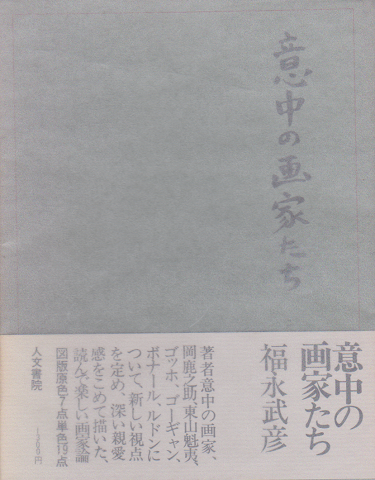 意中の画家たち
意中の
画家たち
福永武彦
著者意中の画家、
岡鹿之助、東山魁夷、
ゴッホ、ゴーギャン、
ボナール、ルドンに
ついて、新しい視点
を定め、深い親愛
感をこめて描いた、
読んで楽しい画家論
図版原色7点単色19点
人文書院